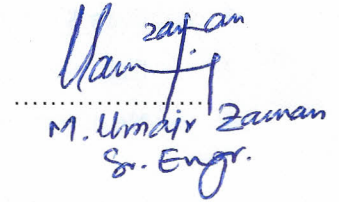 zaman
M. Umair Zaman
Sr. Engr.